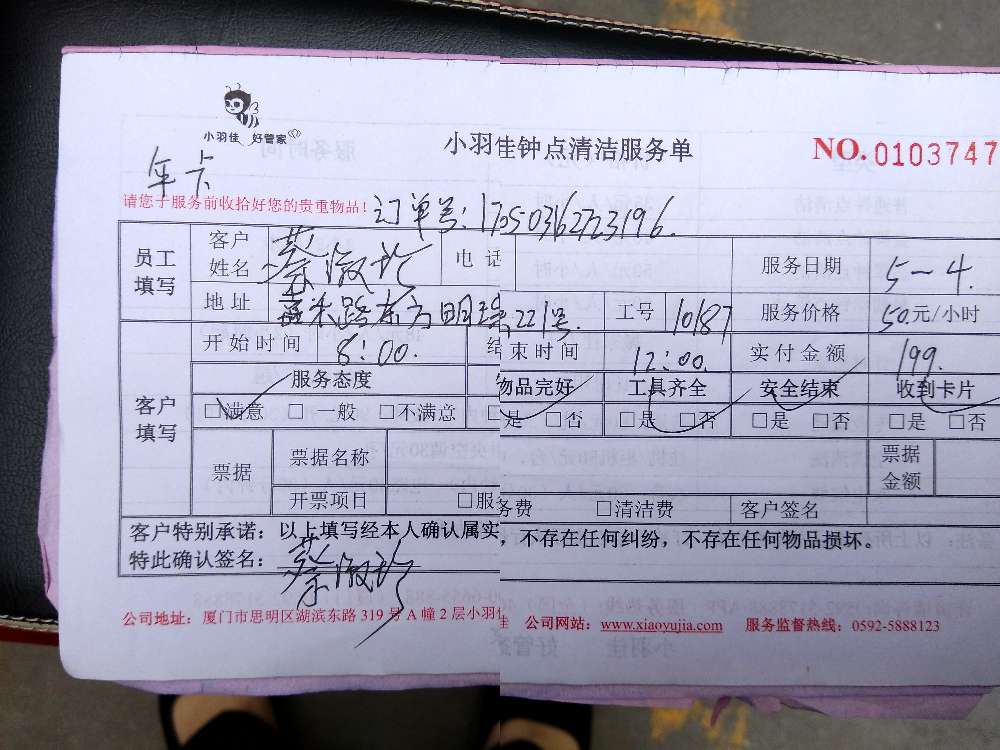 小羽佳 好管家
小羽佳钟点清洁服务单
NO. 0103747
年卡
请您于服务前收拾好您的贵重物品!
订单号:
员工填写
客户姓名
电话
服务日期 5-4.
地址
东方明珠221号.
工号 10187
服务价格 50.元/小时
客户填写
开始时间 8:00.
结束时间 12:00
实付金额 199.
服务态度
物品完好
工具齐全
安全结束
收到卡片
□满意 □一般 □不满意
□是 □否
□是 □否
□是 □否
□是 □否
票据
票据名称
票据金额
开票项目
□服务费 □清洁费
客户签名
客户特别承诺:以上填写经本人确认属实,不存在任何纠纷,不存在任何物品损坏。
特此确认签名:
公司地址:厦门市思明区湖滨东路 319 号 A 幢 2 层小羽佳 公司网站:www.xiaoyujia.com 服务监督热线:0592-5888123